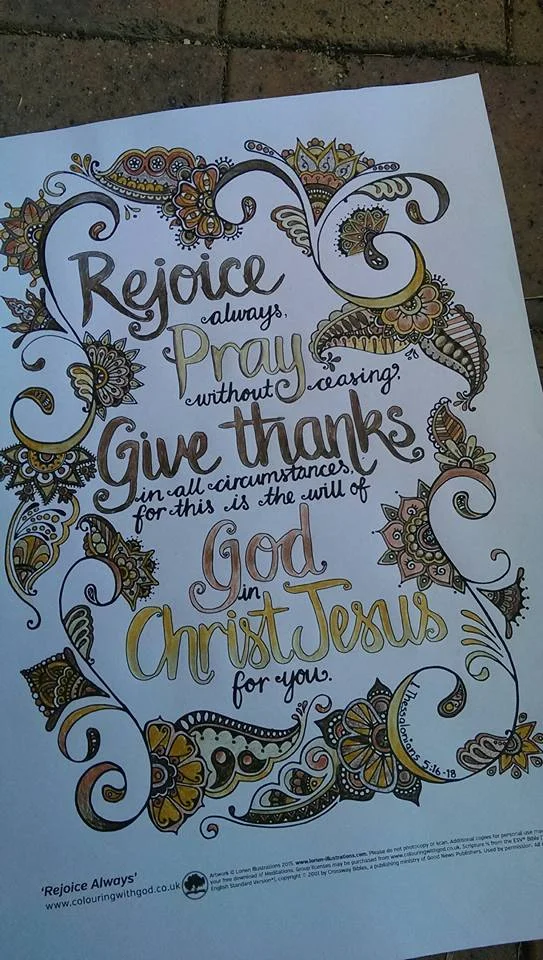 Rejoice
always,
Pray
without ceasing,
Give thanks
in all circumstances,
for this is the will of
God
in
Christ Jesus
for you.
1 Thessalonians 5:16-18
'Rejoice Always'
www.colouringwithgod.co.uk
Artwork © Lorien Illustrations 2015. www.lorien-illustrations.com. Please do not photocopy or scan. Additional copies for personal use
your free download of Meditations. Group licenses may be purchased from www.colouringwithgod.co.uk. Scripture is from the ESV® Bible
English Standard Version®), copyright © 2001 by Crossway Bibles, a publishing ministry of Good News Publishers. Used by permission. All